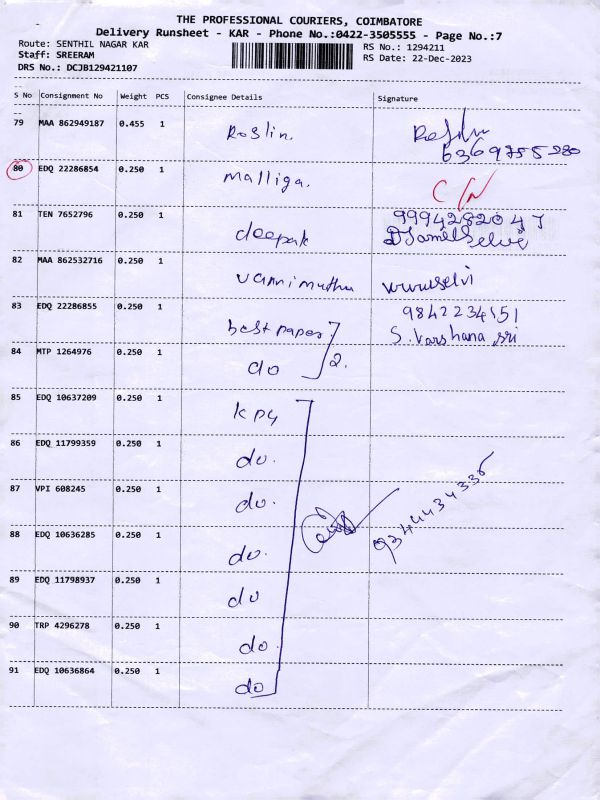 THE PROFESSIONAL COURIERS, COIMBATORE
Delivery Runsheet - KAR - Phone No.:0422-3505555 - Page No.:7
Route: SENTHIL NAGAR KAR
RS No.: 1294211
Staff: SREERAM
RS Date: 22-Dec-2023
DRS No.: DCJB129421107
S No Consignment No Weight PCS Consignee Details Signature
79 MAA 862949187 0.455 1 Roslin.
6369755280
80 EDQ 22286854 0.250 1 Malliga. C/N
81 TEN 7652796 0.250 1 deepak 9994282047
D Tamil Selvi
82 MAA 862532716 0.250 1 vannimuthu
83 EDQ 22286855 0.250 1 best paper 9842234151
S. Varshana sri
84 MTP 1264976 0.250 1 do 2.
85 EDQ 10637209 0.250 1 kpy
86 EDQ 11799359 0.250 1 do.
87 VPI 608245 0.250 1 do. 9344434335
88 EDQ 10636285 0.250 1 do.
89 EDQ 11798937 0.250 1 do
90 TRP 4296278 0.250 1 do.
91 EDQ 10636864 0.250 1 do